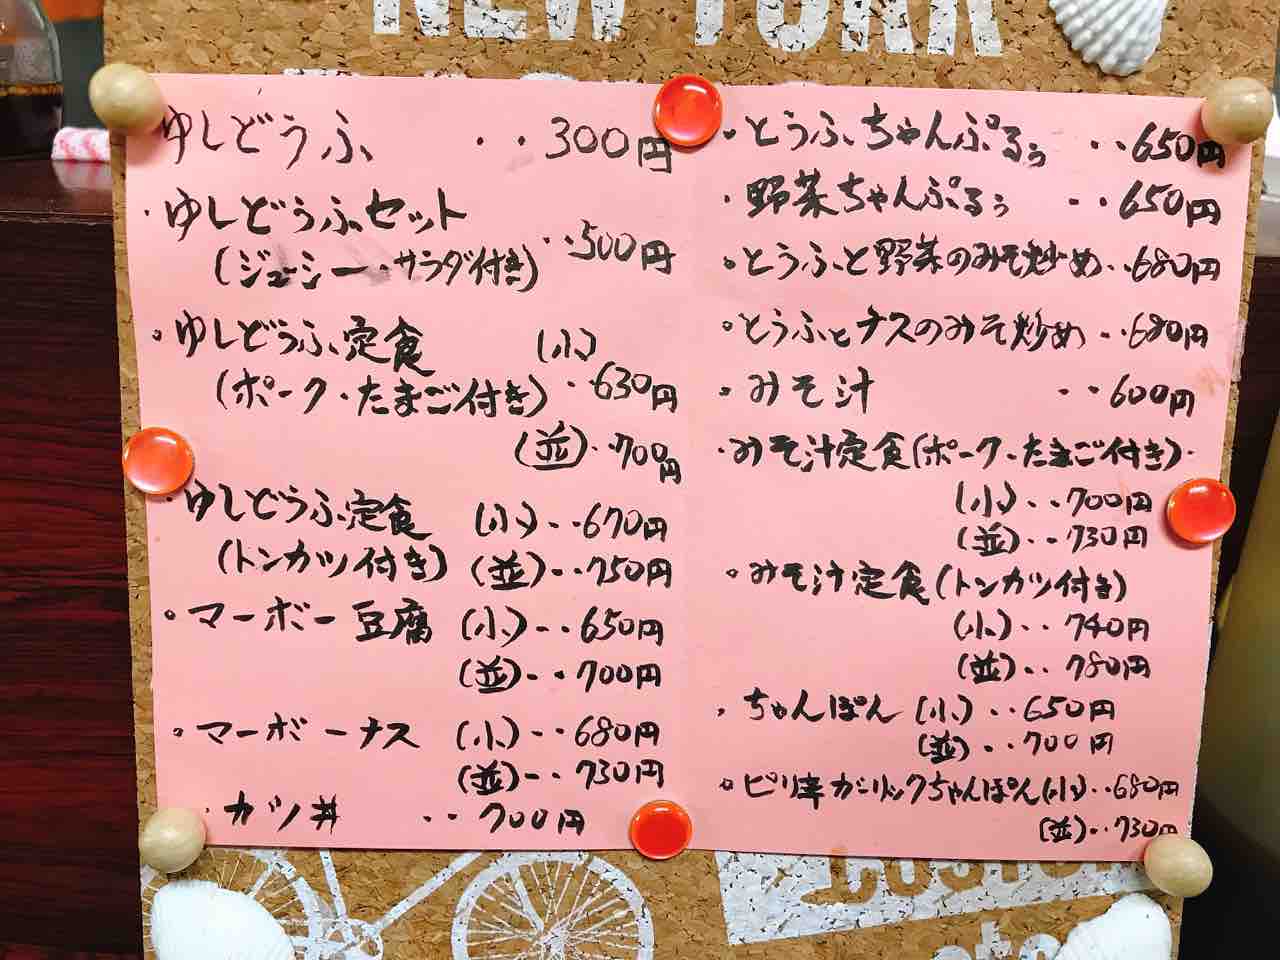 NEW YORK
ゆしどうふ ・・300円
・ゆしどうふセット
(ジューシー・サラダ付き) ・・500円
・ゆしどうふ定食 (小)
(ポーク・たまご付き) ・・630円
(並)・・700円
・ゆしどうふ定食 (小)・・670円
(トンカツ付き) (並)・・750円
・マーボー豆腐 (小)・・650円
(並)・・700円
・マーボーナス (小)・・680円
(並)・・730円
・カツ丼 ・・700円
・とうふちゃんぷるぅ ・・650円
・野菜ちゃんぷるぅ ・・650円
・とうふと野菜のみそ炒め・・680円
・とうふとナスのみそ炒め・・680円
・みそ汁 ・・600円
・みそ汁定食(ポーク・たまご付き)・
(小)・・700円
(並)・・730円
・みそ汁定食(トンカツ付き)
(小)・・740円
(並)・・780円
・ちゃんぽん (小)・・650円
(並)・・700円
・ピリ辛ガーリックちゃんぽん(小)・・680円
(並)・・730円